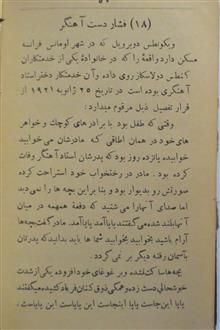 (۱۸) فشار دست آهنگر
ویکونطس دوبرویل که در شهر اومانس فرانسه
مسکن دارد واقعهٔ را که در خانوادهٔ یکی از خدمتکاران
کنطس دولاسکاز روی داده و آن خدمتکار دختر استاد
آهنگری بوده است در تاریخ ۲۵ ژانویه ۱۹۲۱ از
قرار تفصیل ذیل مرقوم میدارد:
وقتی که طفل بود با برادرهای کوچک و خواهر
های خود در همان اطاقی که مادرشان می خوابید
میخوابیده پانزده روز بود که پدرشان استاد آهنگر وفات
کرده بود. مادر در رختخواب خود استراحت کرده
صورتش رو بدیوار بود و بنا براین بچه ها را نمی دید
اما صدای آنها را می شنید که دفعة همهمه در میان
آنها بلند شده می گفتند پاپا آمد پاپا آمد. مادر گفت بچه ها
آرام باشید بخوابید بخوابید شما ها باید بدانید که پدرتان
بآسمان رفته دیگر بر نمی گردد.
بچه ها ساکت نشده و بر غوغای خود افزوده یکی از شدت
خوشحالی دست زده و همگی ذوق کنان فریاد کشیده میگفتند
پاپا این جاست پاپا اینجاست این پاپاست این پاپاست،